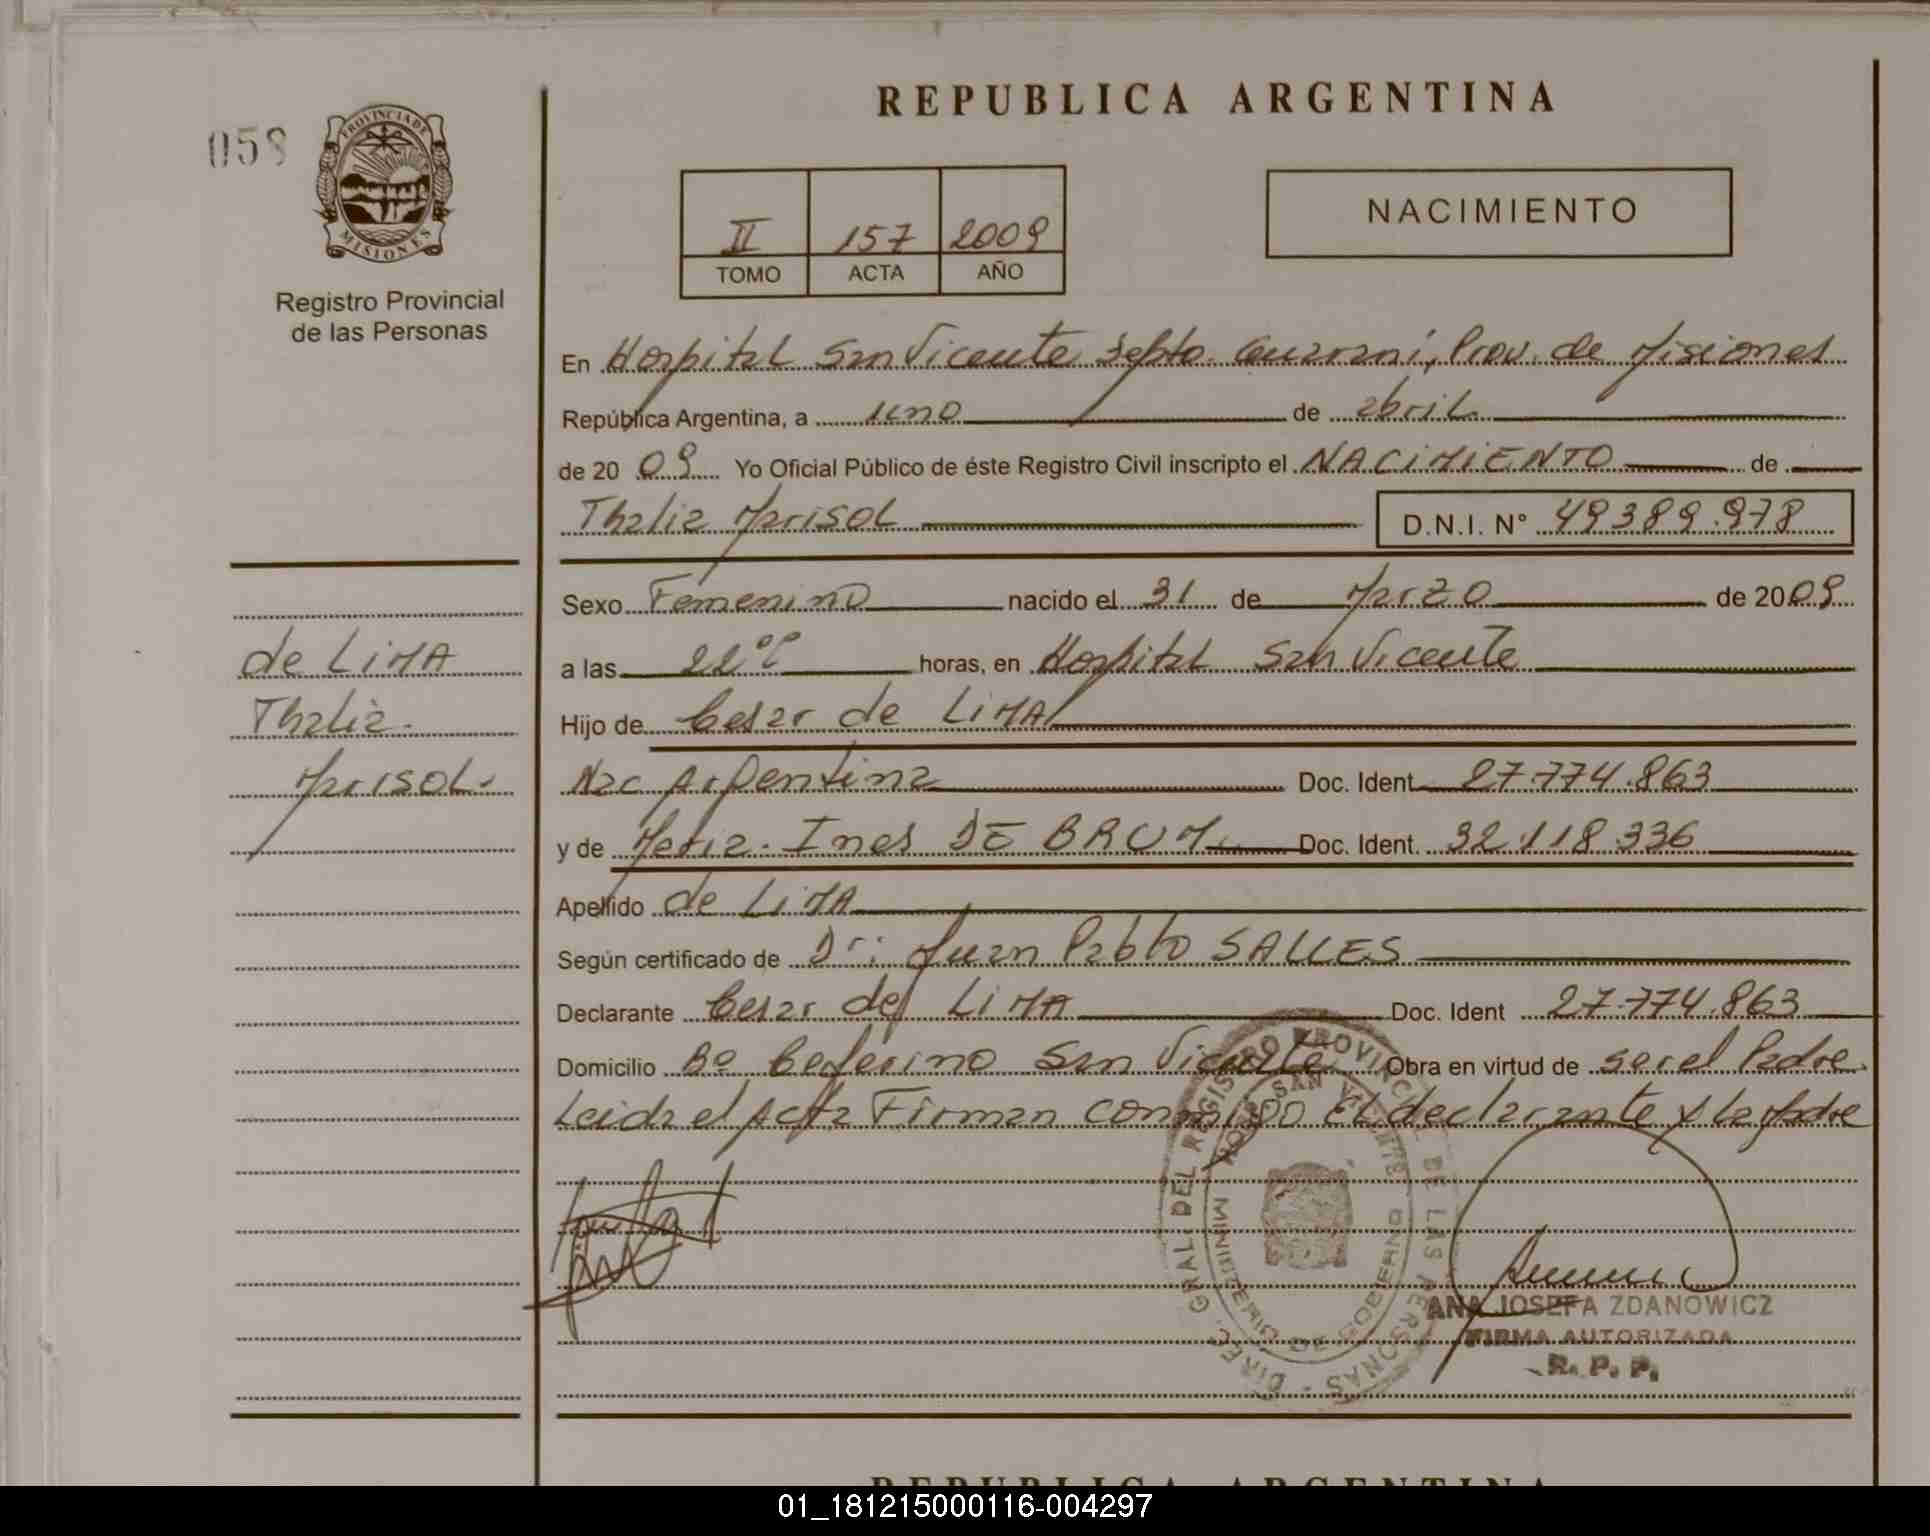 REPUBLICA ARGENTINA
058
PROVINCIA DE
MISIONES
Registro Provincial
de las Personas
NACIMIENTO
II 157 2009
TOMO ACTA AÑO
En Hospital San Vicente Depto. Guarani, Prov. de Misiones
República Argentina, a uno de abril
de 20 09 Yo Oficial Público de éste Registro Civil inscripto el NACIMIENTO de
Thalia Marisol D.N.I. N° 49389.978
Sexo Femenino nacido el 31 de Marzo de 2009
a las 22 horas, en Hospital San Vicente
Hijo de Cesar de LIMA
Nac Argentina Doc. Ident 27.774.863
y de Maria Ines DE BRUM Doc. Ident. 32.118.336
Apellido de LIMA
Según certificado de Dr: Juan Pablo SALLES
Declarante Cesar de LIMA Doc. Ident 27.774.863
Domicilio Bº Ceferino San Vicente Obra en virtud de ser el Padre
Leida el Acta Firman conmigo El declarante y la Madre
de LIMA
Thalia
Marisol.
DIREC. GRAL. DEL REGISTRO PROVINCIAL DE LAS PERSONAS
SAN VICENTE
MINISTERIO DE GOBIERNO
ANA JOSEFA ZDANOWICZ
FIRMA AUTORIZADA
R. P. P.
REPUBLICA ARGENTINA
01_181215000116-004297